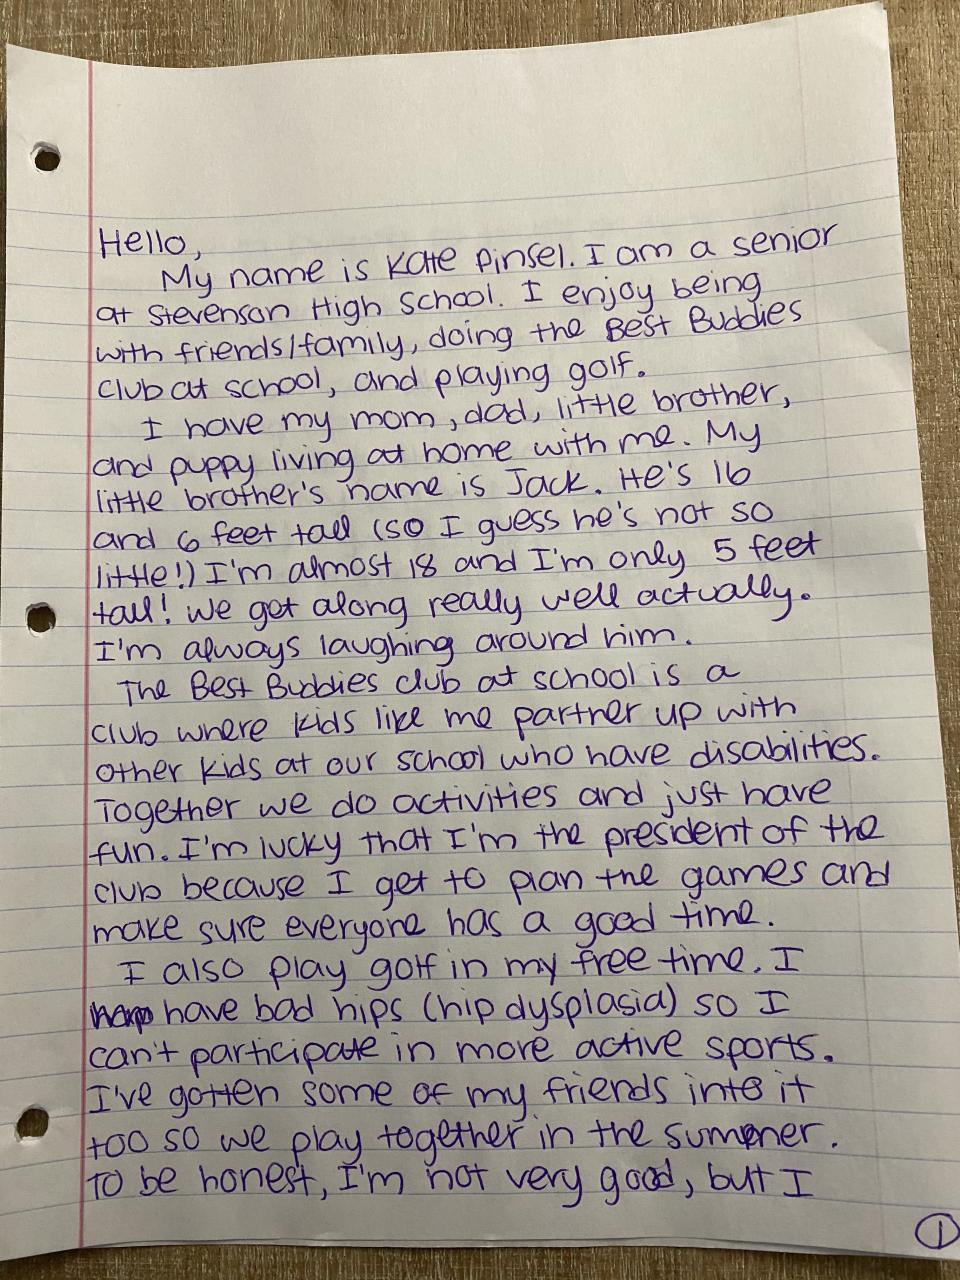 Hello,
My name is Kate Pinsel. I am a senior
at Stevenson High School. I enjoy being
with friends/family, doing the Best Buddies
club at school, and playing golf.
I have my mom, dad, little brother,
and puppy living at home with me. My
little brother's name is Jack. He's 16
and 6 feet tall (so I guess he's not so
little!) I'm almost 18 and I'm only 5 feet
tall! We get along really well actually.
I'm always laughing around him.
The Best Buddies club at school is a
club where kids like me partner up with
other kids at our school who have disabilities.
Together we do activities and just have
fun. I'm lucky that I'm the president of the
club because I get to plan the games and
make sure everyone has a good time.
I also play golf in my free time. I
have bad hips (hip dysplasia) so I
can't participate in more active sports.
I've gotten some of my friends into it
too so we play together in the summer.
To be honest, I'm not very good, but I
1